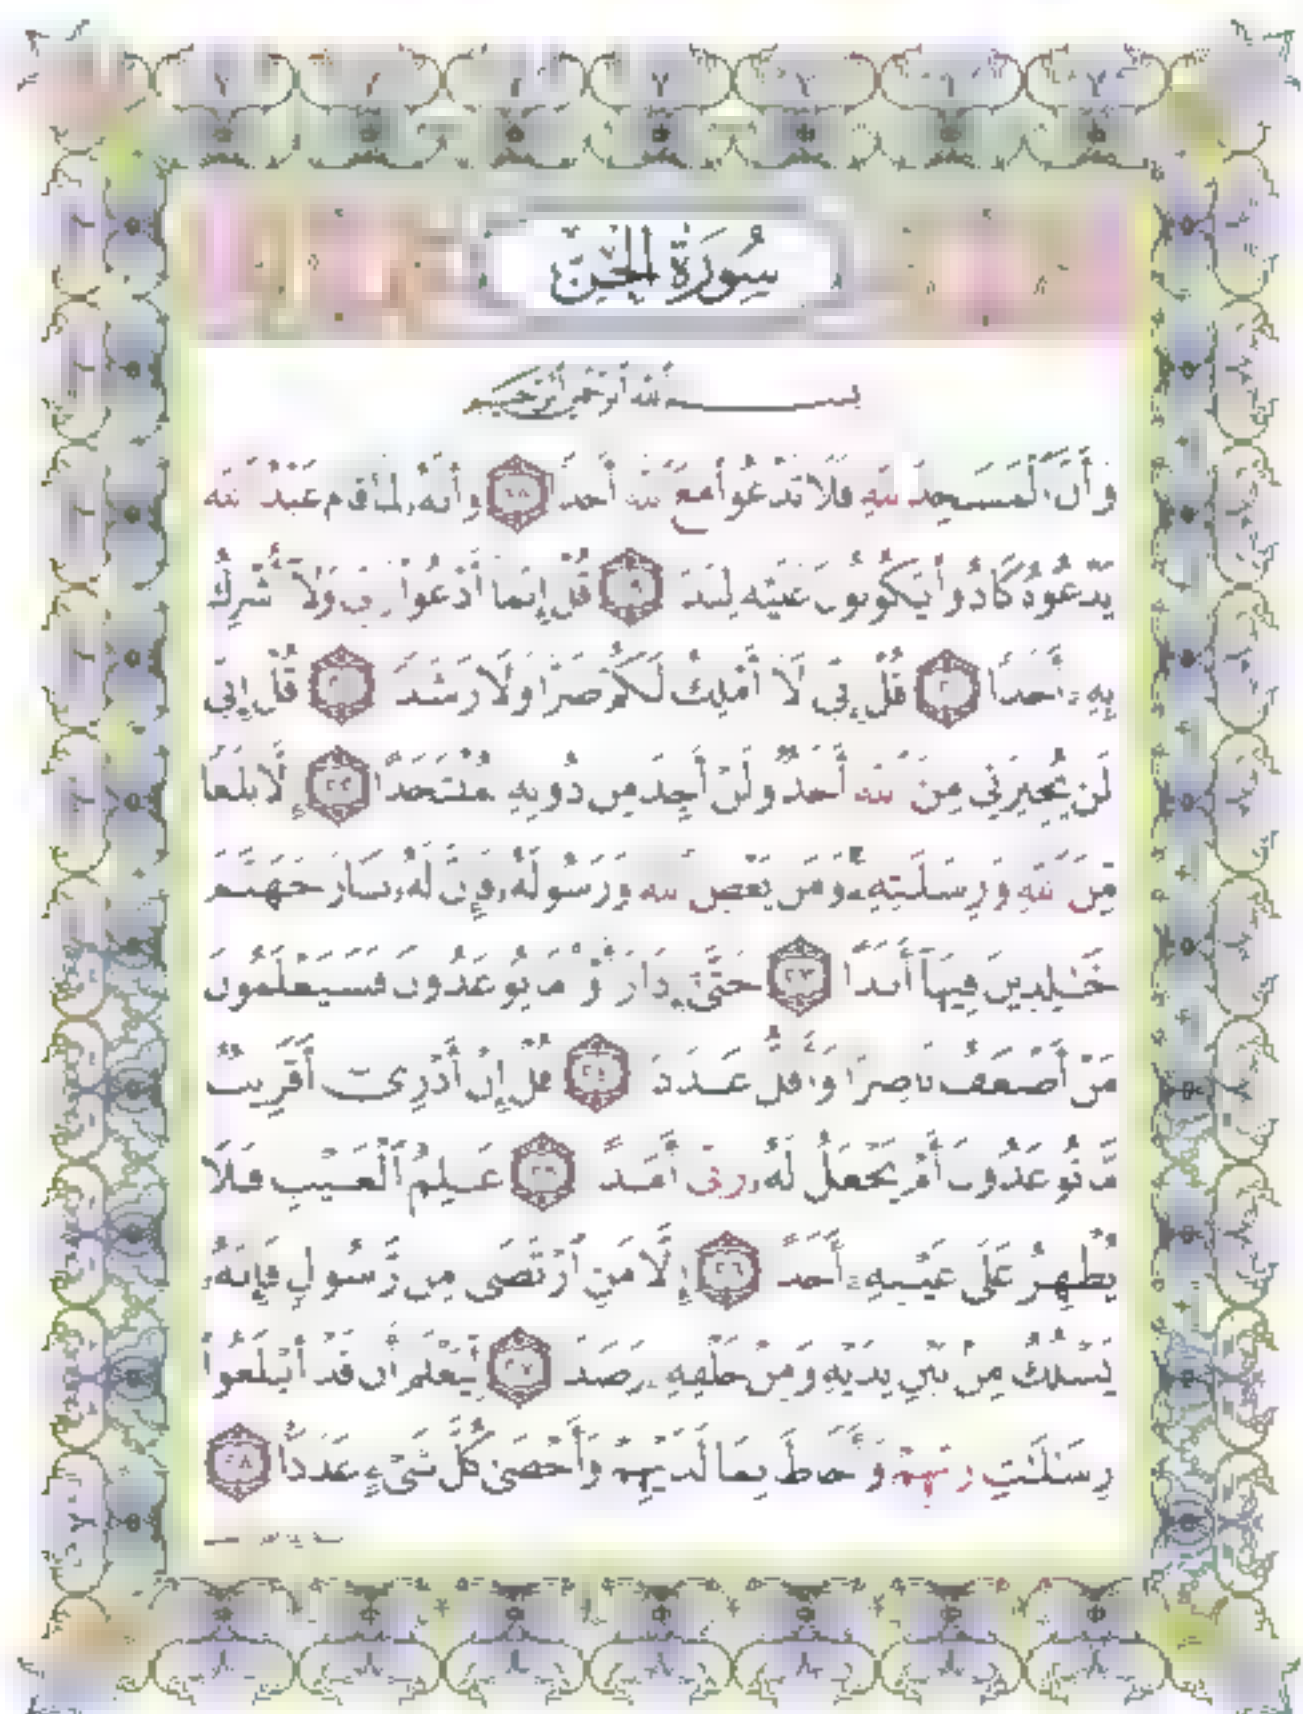 سُورَةُ الجِنِّ
بِسْمِ اللَّهِ الرَّحْمَٰنِ الرَّحِيمِ
وَأَنَّ الْمَسَاجِدَ لِلَّهِ فَلَا تَدْعُوا مَعَ اللَّهِ أَحَدًا ١٨ وَأَنَّهُ لَمَّا قَامَ عَبْدُ اللَّهِ
يَدْعُوهُ كَادُوا يَكُونُونَ عَلَيْهِ لِبَدًا ١٩ قُلْ إِنَّمَا أَدْعُوا رَبِّي وَلَا أُشْرِكُ
بِهِ أَحَدًا ٢٠ قُلْ إِنِّي لَا أَمْلِكُ لَكُمْ ضَرًّا وَلَا رَشَدًا ٢١ قُلْ إِنِّي
لَن يُجِيرَنِي مِنَ اللَّهِ أَحَدٌ وَلَنْ أَجِدَ مِن دُونِهِ مُلْتَحَدًا ٢٢ إِلَّا بَلَاغًا
مِّنَ اللَّهِ وَرِسَالَاتِهِ وَمَن يَعْصِ اللَّهَ وَرَسُولَهُ فَإِنَّ لَهُ نَارَ جَهَنَّمَ
خَالِدِينَ فِيهَا أَبَدًا ٢٣ حَتَّىٰ إِذَا رَأَوْا مَا يُوعَدُونَ فَسَيَعْلَمُونَ
مَنْ أَضْعَفُ نَاصِرًا وَأَقَلُّ عَدَدًا ٢٤ قُلْ إِنْ أَدْرِي أَقَرِيبٌ
مَّا تُوعَدُونَ أَمْ يَجْعَلُ لَهُ رَبِّي أَمَدًا ٢٥ عَالِمُ الْغَيْبِ فَلَا
يُظْهِرُ عَلَىٰ غَيْبِهِ أَحَدًا ٢٦ إِلَّا مَنِ ارْتَضَىٰ مِن رَّسُولٍ فَإِنَّهُ
يَسْلُكُ مِن بَيْنِ يَدَيْهِ وَمِنْ خَلْفِهِ رَصَدًا ٢٧ لِّيَعْلَمَ أَن قَدْ أَبْلَغُوا
رِسَالَاتِ رَبِّهِمْ وَأَحَاطَ بِمَا لَدَيْهِمْ وَأَحْصَىٰ كُلَّ شَيْءٍ عَدَدًا ٢٨